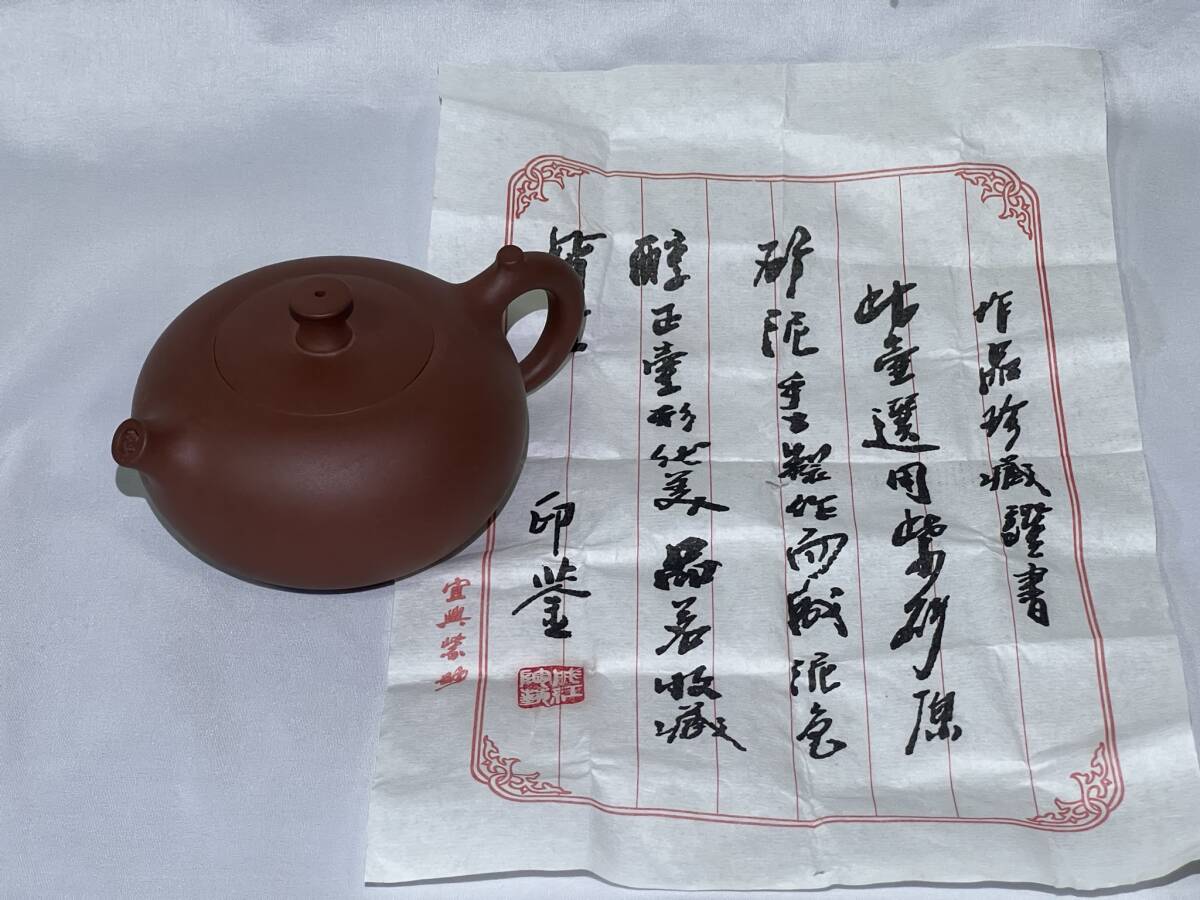 作品珍藏證書
此壺選用紫砂原
砂泥手製作而成泥色
醇正壺形優美品茗收藏
印鉴
宜興紫陶